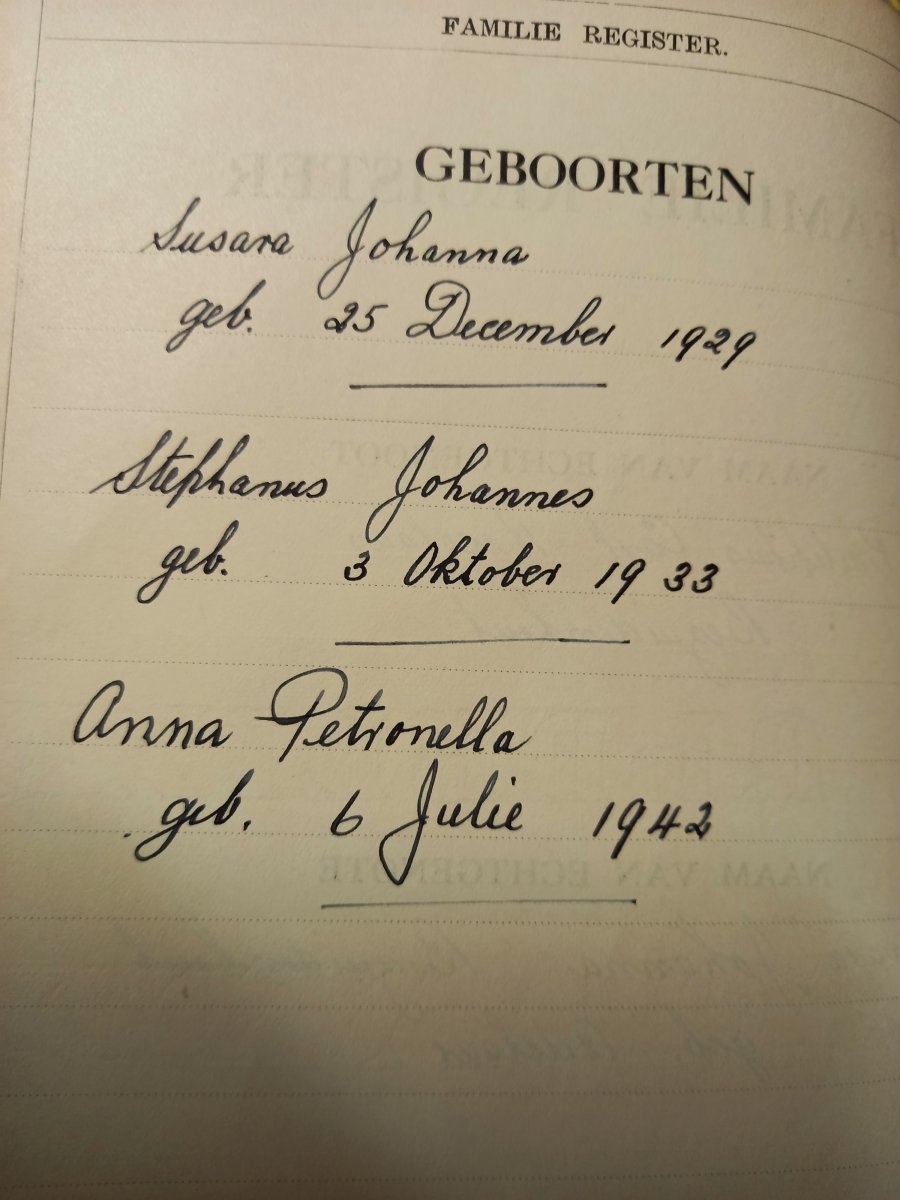 FAMILIE REGISTER.
GEBOORTEN
Susara Johanna
geb. 25 December 1929
Stephanus Johannes
geb. 3 Oktober 1933
Anna Petronella
geb. 6 Julie 1942